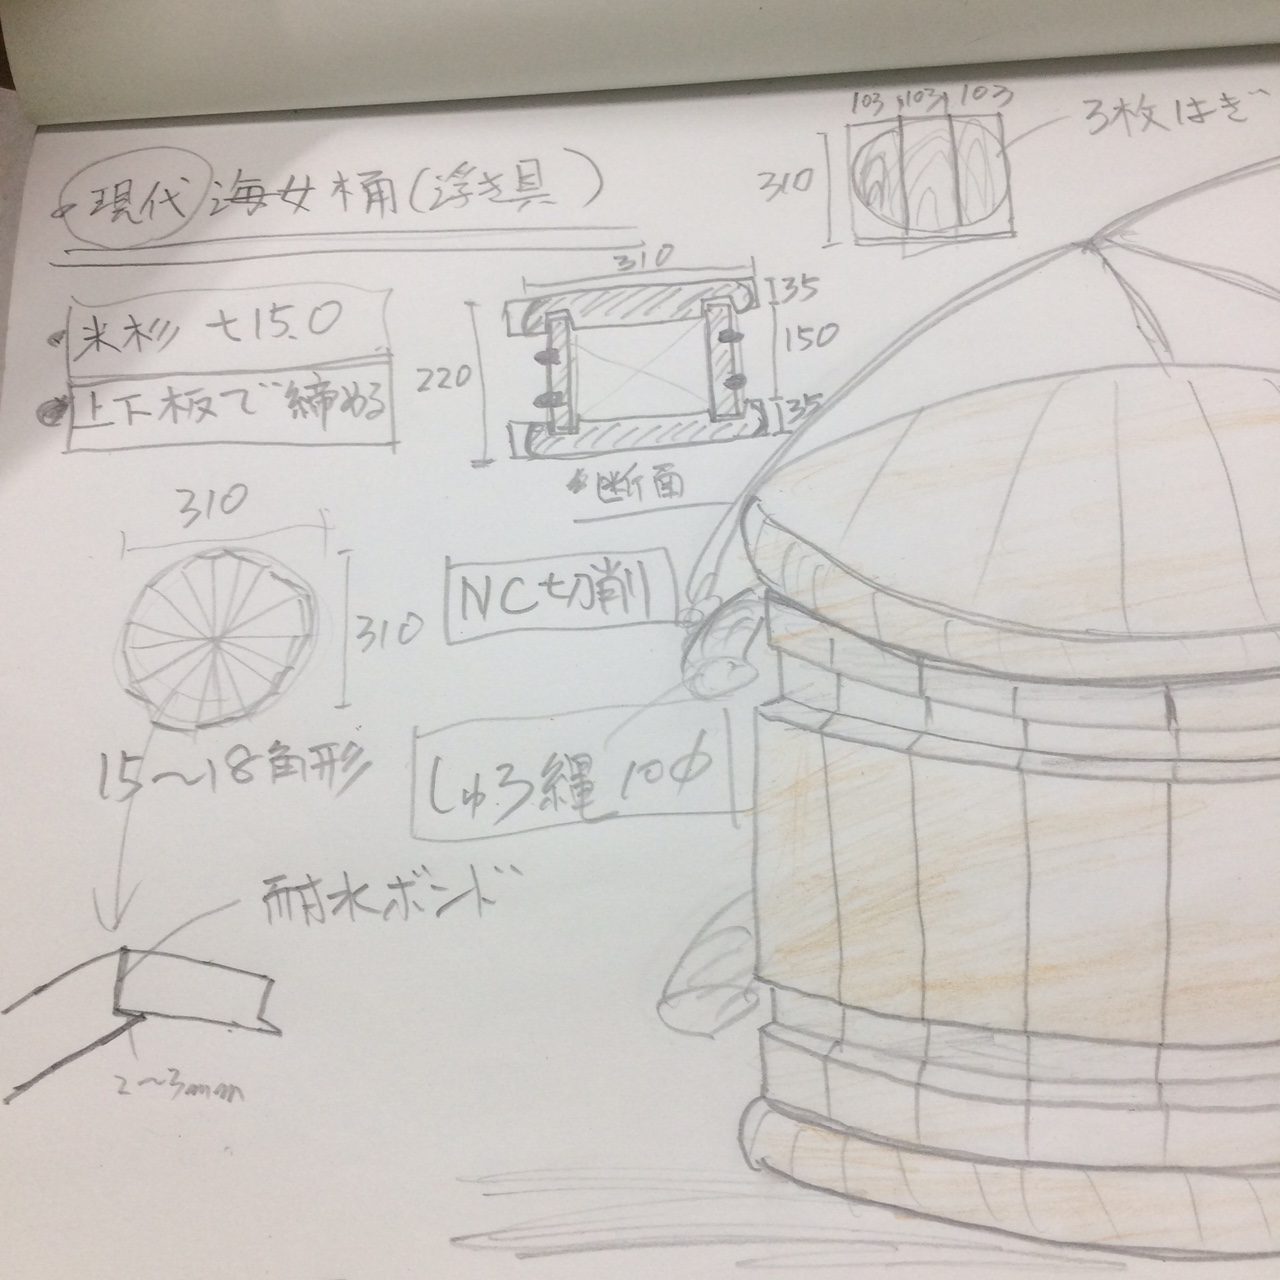 現代 海女桶(浮き具)
米杉 t15.0
上下板で締める
103 103 103
310
3枚はぎ
310
35
150
35
220
断面
310
310
15〜18角形
NC切削
しゅろ縄 10φ
耐水ボンド
2〜3mm